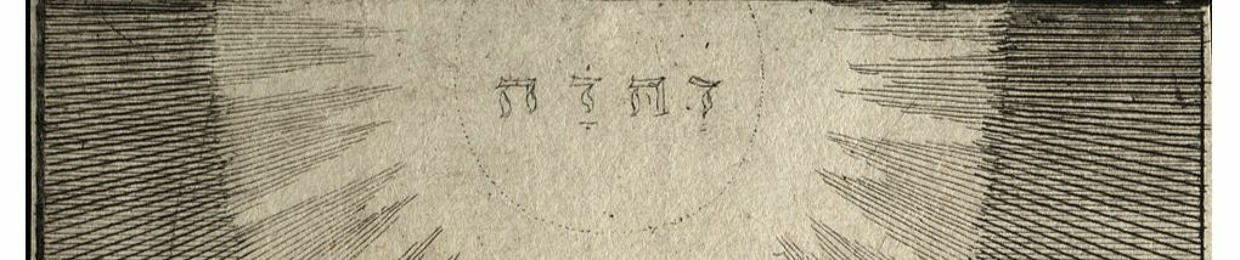 יְהוָֹה